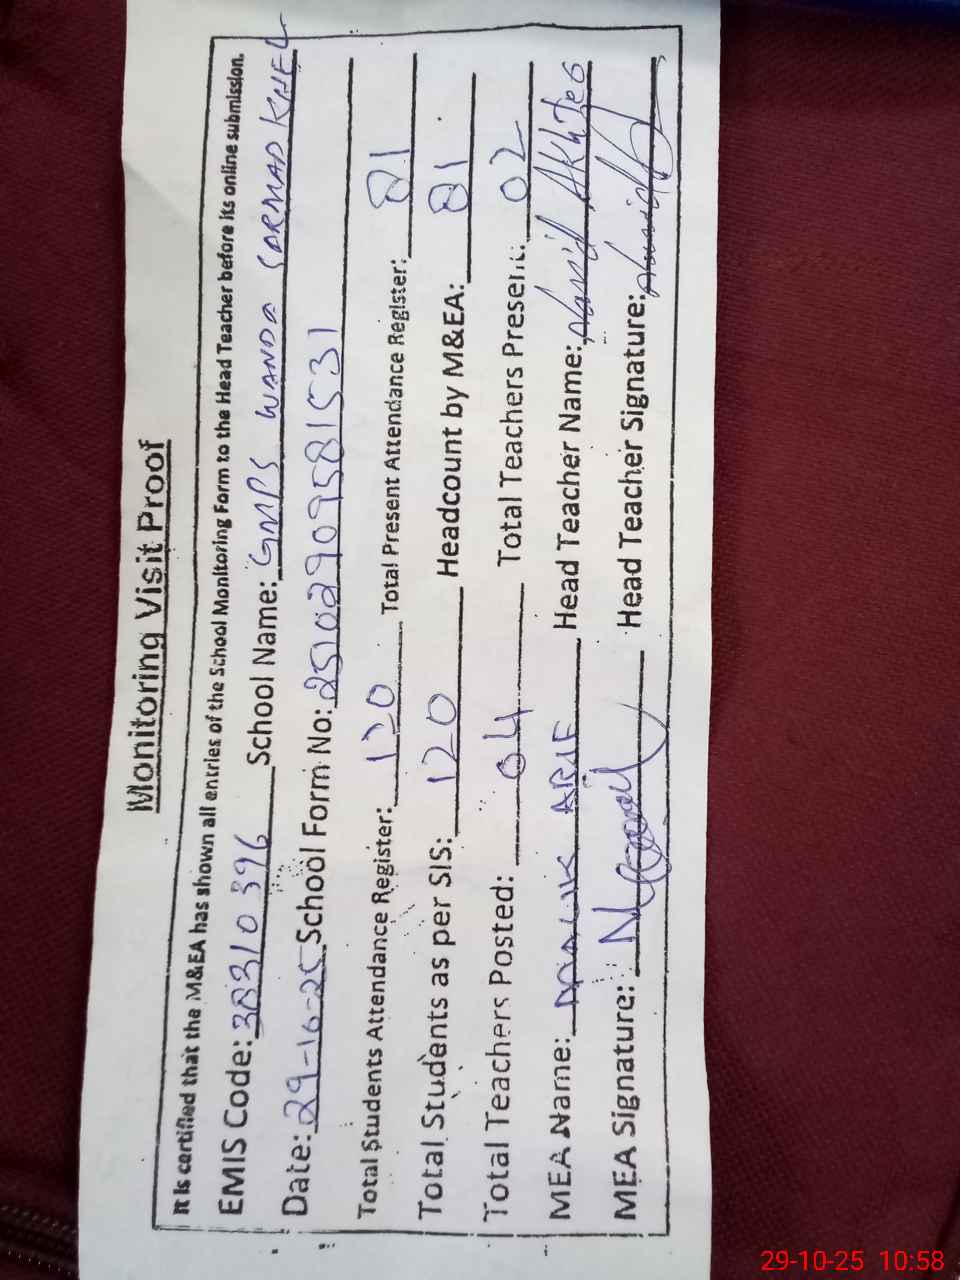 Monitoring Visit Proof
It is certified that the M&EA has shown all entries of the School Monitoring Form to the Head Teacher before its online submission.
EMIS Code: 38310396 School Name: GMPS WANDA SARMAD KHEL
Date: 29-10-25 School Form No: 25102909581531
Total Students Attendance Register: 120 Total Present Attendance Register: 81
Total Students as per SIS: 120 Headcount by M&EA: 81
Total Teachers Posted: 04 Total Teachers Present: 02
MEA Name: MALIK ARIF Head Teacher Name: AKHTER
MEA Signature: Head Teacher Signature:
29-10-25 10:58